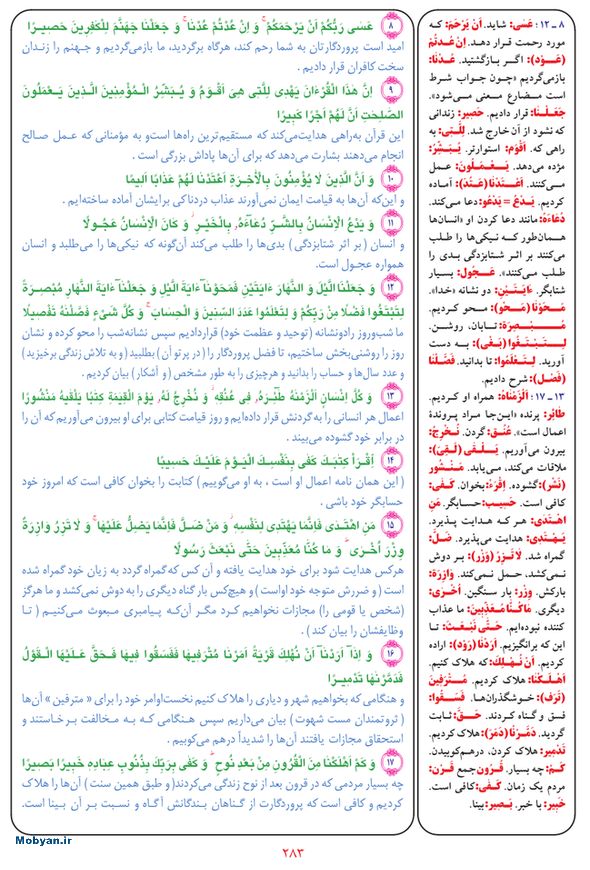 ۸ ـ ۱۲: عَسَى: شاید. اَنْ یَرْحَمَ: که
مورد رحمت قرار دهد. اِنْ عُدتُمْ
(عَوْد): اگر بازگشتید. عُدْنَا:
بازمی‌گردیم «چون جواب شرط
است مضارع معنی می‌شود».
جَعَلْنَا: قرار دادیم. حَصِیر: زندانی
که نشود از آن خارج شد. لِلَّتِی: به
راهی که. أَقْوَم: استوارتر. یُبَشِّرُ:
مژده می‌دهد. یَعْمَلُونَ: عمل
می‌کنند. أَعْتَدْنَا (عَتَدَ): آماده
کردیم. یَدْعُ = یَدْعُو: دعا می‌کند.
دُعَاءَهُ: مانند دعا کردن او «انسانها
همان‌طور که نیکی‌ها را طلب
می‌کنند بر اثر شتابزدگی بدی را
طلب می‌کنند». عَجُول: بسیار
شتابگر. ءَایَتَیْنِ: دو نشانه «خدا».
مَحَوْنَا (مَحْو): محو کردیم.
مُبْصِرَة: تابان، روشن.
لِتَبْتَغُوا (بَغْی): به دست
آورید. لِتَعْلَمُوا: تا بدانید. فَصَّلْنَا
(فَصْل): شرح دادیم.
۱۳ ـ ۱۷: أَلْزَمْنَاهُ: همراه او کردیم.
طَائِر: پرنده «این‌جا مراد پروندهٔ
اعمال است». عُنُق: گردن. نُخْرِجُ:
بیرون می‌آوریم. یَلْقَی (لُقِیّ):
ملاقات می‌کند، می‌یابد. مَنْشُور
(نَشْر): گشوده. اِقْرَءْ: بخوان. کَفَی:
کافی است. حَسِیب: حسابگر. مَنِ
اهْتَدَی: هر که هدایت پذیرد.
یَهْتَدِی: هدایت می‌پذیرد. ضَلَّ:
گمراه شد. لَا تَزِرُ (وِزْر): بر دوش
نمی‌کشد، حمل نمی‌کند. وَازِرَة:
بارکش. وِزْر: بار سنگین. أُخْرَی:
دیگری. مَا کُنَّا مُعَذِّبِینَ: ما عذاب
کننده نبوده‌ایم. حَتَّی نَبْعَثَ: تا
این که برانگیزیم. أَرَدْنَا (رَوْد): اراده
کردیم. أَنْ نُهْلِکَ: که هلاک کنیم.
أَهْلَکْنَا: هلاک کردیم. مُتْرَفِینَ
(تَرَف): خوشگذران‌ها. فَسَقُوا:
فسق و گناه کردند. حَقَّ: ثابت
گردید. دَمَّرْنَا (دَمْر): هلاک کردیم.
تَدْمِیر: هلاک کردن، درهم‌کوبیدن.
کَمْ: چه بسیار. قُرُون جمع قَرْن:
مردم یک زمان. کَفَی: کافی است.
خَبِیر: با خبر. بَصِیر: بینا.
۸ عَسَى رَبُّكُمْ اَنْ يَرْحَمَكُمْ وَ اِنْ عُدْتُمْ عُدْنَا وَ جَعَلْنَا جَهَنَّمَ لِلْكٰفِرِينَ حَصِيرًا
امید است پروردگارتان به شما رحم کند، هرگاه برگردید، ما بازمی‌گردیم و جهنم را زندان
سخت کافران قرار دادیم .
۹ اِنَّ هٰذَا الْقُرْءَانَ يَهْدِى لِلَّتِى هِىَ اَقْوَمُ وَ يُبَشِّرُ الْمُؤْمِنِينَ الَّذِينَ يَعْمَلُونَ
الصّٰلِحٰتِ اَنَّ لَهُمْ اَجْرًا كَبِيرًا
این قرآن به‌راهی هدایت‌می‌کند که مستقیم‌ترین راه‌ها است‌و به مؤمنانی که عمل صالح
انجام می‌دهند بشارت می‌دهد که برای آن‌ها پاداش بزرگی است .
۱۰ وَ اَنَّ الَّذِينَ لَا يُؤْمِنُونَ بِالْاٰخِرَةِ اَعْتَدْنَا لَهُمْ عَذَابًا اَلِيمًا
و این‌که آن‌ها به قیامت ایمان نمی‌آورند عذاب دردناکی برایشان آماده ساخته‌ایم .
۱۱ وَ يَدْعُ الْاِنْسَانُ بِالشَّرِّ دُعَاءَهُ بِالْخَيْرِ وَ كَانَ الْاِنْسَانُ عَجُولًا
و انسان ( بر اثر شتابزدگی ) بدی‌ها را طلب می‌کند آن‌گونه که نیکی‌ها را می‌طلبد و انسان
همواره عجول است.
۱۲ وَ جَعَلْنَا الَّيْلَ وَ النَّهَارَ ءَايَتَيْنِ فَمَحَوْنَا ءَايَةَ الَّيْلِ وَ جَعَلْنَا ءَايَةَ النَّهَارِ مُبْصِرَةً
لِتَبْتَغُوا فَضْلًا مِنْ رَبِّكُمْ وَ لِتَعْلَمُوا عَدَدَ السِّنِينَ وَ الْحِسَابَ وَ كُلَّ شَىْءٍ فَصَّلْنٰهُ تَفْصِيلًا
ما شب‌وروز رادونشانه (توحید و عظمت خود) قراردادیم سپس نشانه‌شب را محو کرده و نشان
روز را روشنی‌بخش ساختیم، تا فضل پروردگار را (در پرتو آن ) بطلبید ( و به تلاش زندگی برخیزید)
و عدد سال‌ها و حساب را بدانید و هرچیزی را به طور مشخص ( و آشکار) بیان کردیم .
۱۳ وَ كُلَّ اِنْسَانٍ اَلْزَمْنٰهُ طٰئِرَهُ فِى عُنُقِهِ وَ نُخْرِجُ لَهُ يَوْمَ الْقِيٰمَةِ كِتٰبًا يَلْقٰيهُ مَنْشُورًا
اعمال هر انسانی را به‌گردنش قرار داده‌ایم و روز قیامت کتابی برای او بیرون می‌آوریم که آن را
در برابر خود گشوده می‌بیند .
۱۴ اِقْرَأْ كِتٰبَكَ كَفٰى بِنَفْسِكَ الْيَوْمَ عَلَيْكَ حَسِيبًا
( این همان نامه اعمال او است ، به او می‌گوییم ) کتابت را بخوان کافی است که امروز خود
حسابگر خود باشی .
۱۵ مَنِ اهْتَدٰى فَاِنَّمَا يَهْتَدِى لِنَفْسِهِ وَ مَنْ ضَلَّ فَاِنَّمَا يَضِلُّ عَلَيْهَا وَ لَا تَزِرُ وَازِرَةٌ
وِزْرَ اُخْرٰى وَ مَا كُنَّا مُعَذِّبِينَ حَتّٰى نَبْعَثَ رَسُولًا
هرکس هدایت شود برای خود هدایت یافته و آن کس که‌گمراه گردد به زیان خود گمراه شده
است ( و ضررش متوجه خود اواست) و هیچ‌کس بار گناه دیگری را به دوش نمی‌کشد و ما هرگز
(شخص یا قومی را) مجازات نخواهیم کرد مگر آن‌که پیامبری مبعوث می‌کنیم ( تا
وظایفشان را بیان کند ) .
۱۶ وَ اِذَا اَرَدْنَا اَنْ نُهْلِكَ قَرْيَةً اَمَرْنَا مُتْرَفِيهَا فَفَسَقُوا فِيهَا فَحَقَّ عَلَيْهَا الْقَوْلُ
فَدَمَّرْنٰهَا تَدْمِيرًا
و هنگامی که بخواهیم شهر و دیاری را هلاک کنیم نخست‌اوامر خود را برای « مترفین » آن‌ها
( ثروتمندان مست شهوت ) بیان می‌داریم سپس هنگامی که به مخالفت برخاستند و
استحقاق مجازات یافتند آن‌ها را شدیداً درهم می‌کوبیم .
۱۷ وَ كَمْ اَهْلَكْنَا مِنَ الْقُرُونِ مِنْ بَعْدِ نُوحٍ وَ كَفٰى بِرَبِّكَ بِذُنُوبِ عِبَادِهِ خَبِيرًا بَصِيرًا
چه بسیار مردمی که در قرون بعد از نوح زندگی می‌کردند( و طبق همین سنت ) آن‌ها را هلاک
کردیم و کافی است که پروردگارت از گناهان بندگانش آگاه و نسبت بر آن بینا است.
Mobyan.ir
۲۸۳